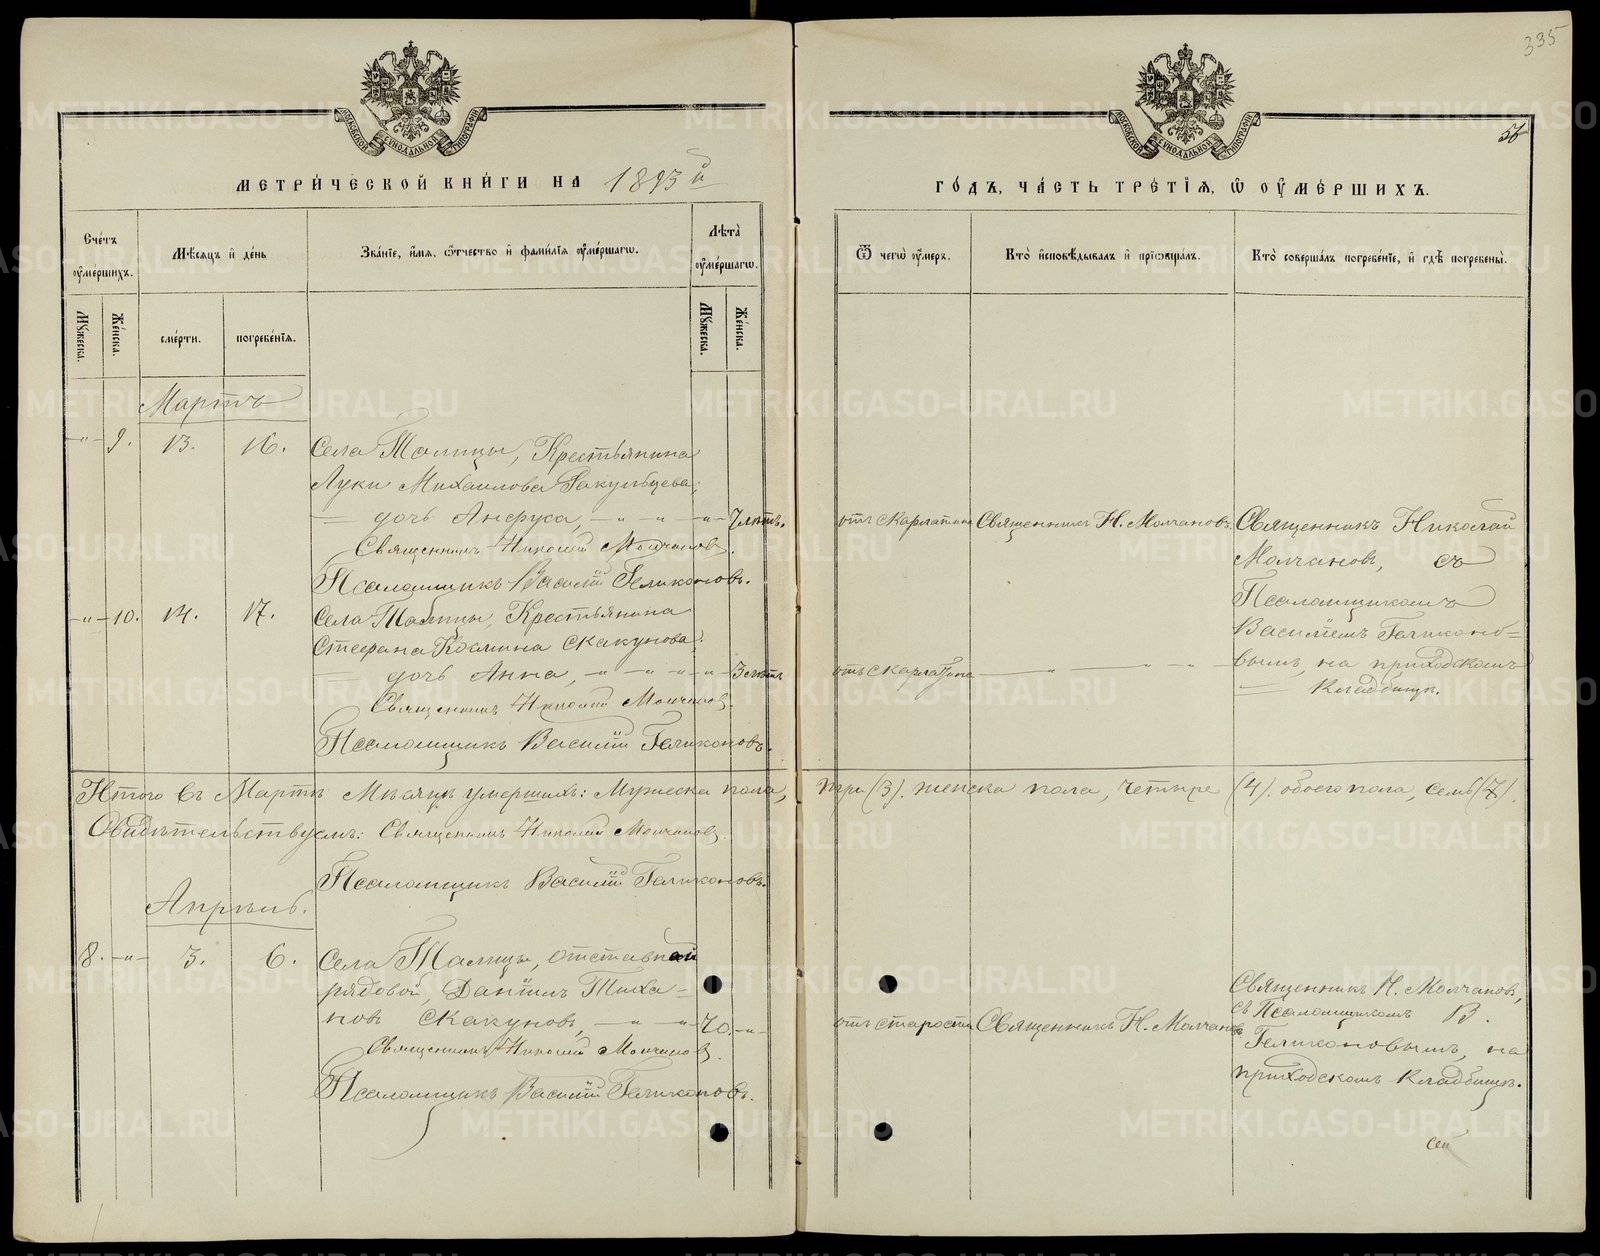 335
57
МЕТРИЧЕСКОЙ КНИГИ НА 1893й
ГОДЪ, ЧАСТЬ ТРЕТІЯ, Ѿ ОУМЕРШИХЪ.
Счетъ оумершихъ.
Мѣсяцъ и день
Званіе, имя, отчество и фамилія оумершагѡ.
Лѣта оумершагѡ.
Ѿ чегѡ оумеръ.
Кто исповѣдывалъ и пріобщалъ.
Кто совершалъ погребеніе, и гдѣ погребены.
Мужеска.
Женска.
смерти.
погребенія.
Мужеска.
Женска.
Мартъ
-"- 9. 13. 16. Села Талицы, Крестьянина
Луки Михаилова Закульцева;
дочь Анфуса, - " - " - " - 7 лѣтъ.
Священникъ Николай Молчановъ.
Псаломщикъ Василій Геликоновъ.
отъ скарлатины
Священникъ Н. Молчановъ.
Священникъ Николай
Молчановъ, съ
Псаломщикомъ
Василіемъ Геликоно=
вымъ, на приходскомъ
кладбищѣ.
-"- 10. 14. 17. Села Талицы, Крестьянина
Стефана Козмина Скакунова;
дочь Анна, - " - " - " - " - 3 лѣтъ
Священникъ Николай Молчановъ.
Псаломщикъ Василій Геликоновъ.
отъ скарлатины - " - " - " -
Итого въ Мартѣ Мѣсяцѣ умершихъ: Мужеска пола, три (3). женска пола, четыре (4). обоего пола, семь (7).
Свидѣтельствуемъ: Священникъ Николай Молчановъ.
Псаломщикъ Василій Геликоновъ.
Апрѣль.
8. -"- 3. 6. Села Талицы, отставной
рядовой, Даніилъ Тиха=
новъ Скакуновъ, - " - " - 70. -"-
Священникъ Николай Молчановъ.
Псаломщикъ Василій Геликоновъ.
отъ старости
Священникъ Н. Молчановъ
Священникъ Н. Молчановъ,
съ Псаломщикомъ В.
Геликоновымъ, на
приходскомъ кладбищѣ.
METRIKI.GASO-URAL.RU